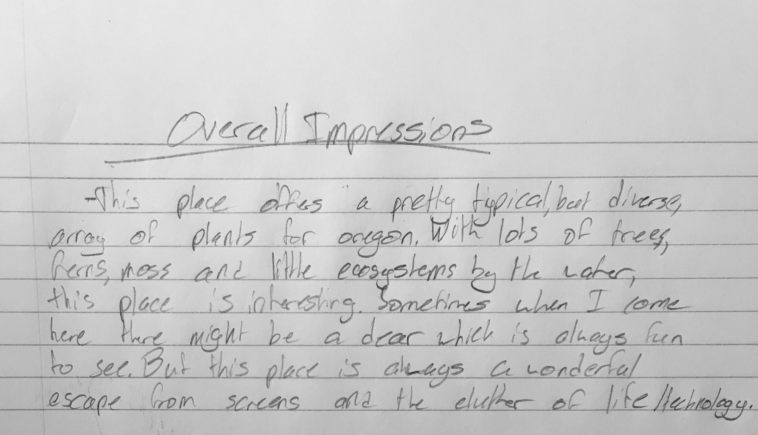 Overall Impressions
-This place offers a pretty typical, but diverse,
array of plants for oregon. With lots of trees,
ferns, moss and little ecosystems by the water,
this place is interesting. Sometimes when I come
here there might be a dear which is always fun
to see. But this place is always a wonderful
escape from screens and the clutter of life/technology.